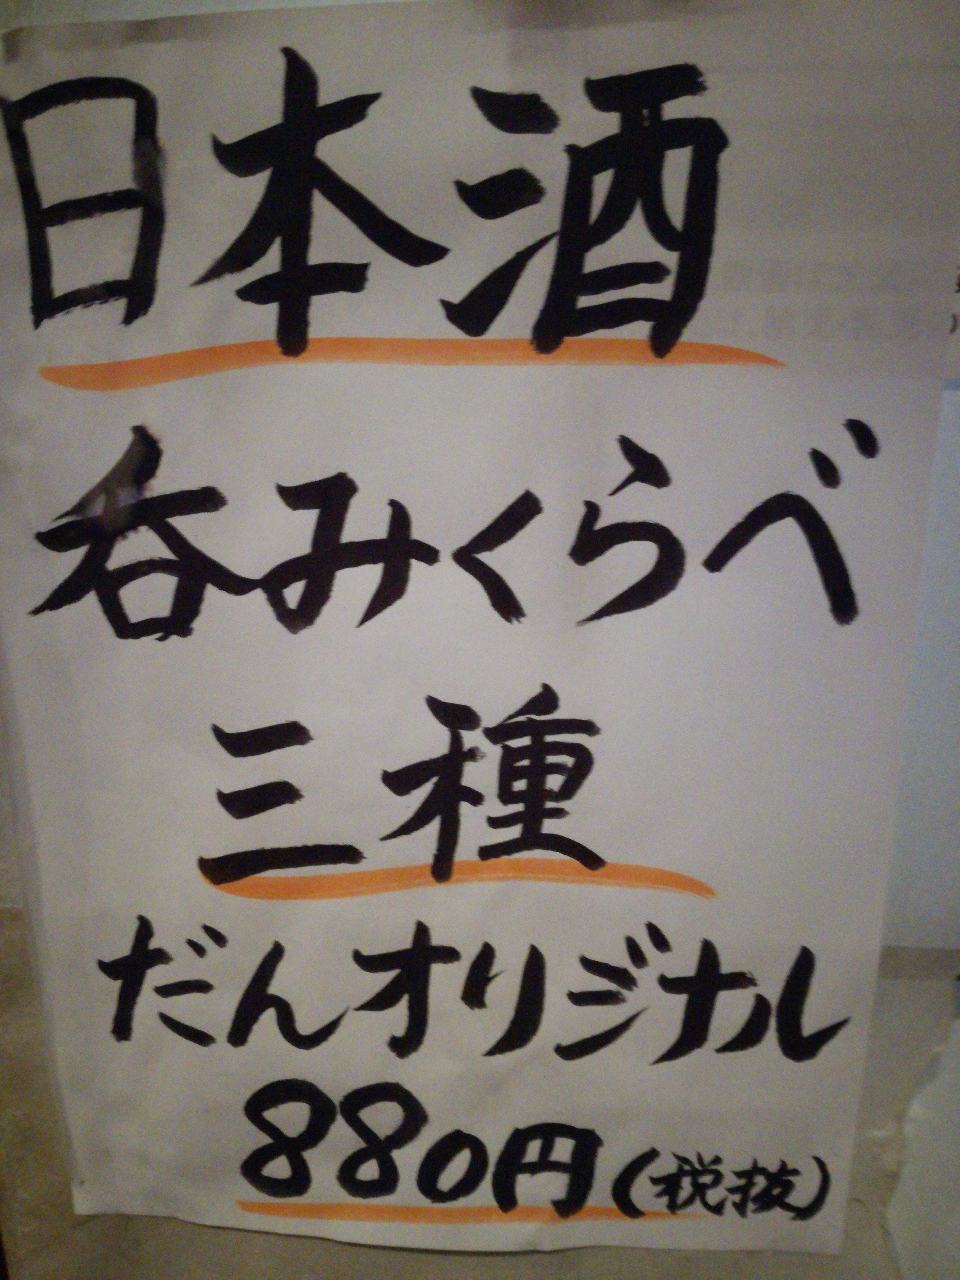 日本酒
呑みくらべ
三種
だんオリジナル
880円(税抜)